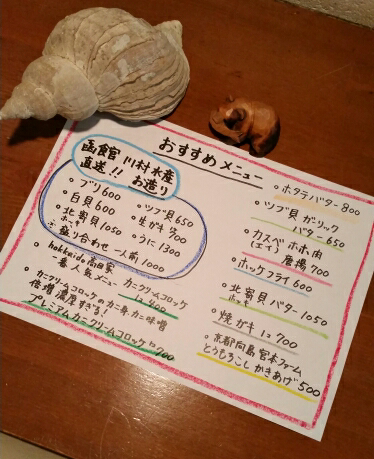 おすすめメニュー
函館 川村水産
直送!! お造り
○ ブリ 600
○ 白貝 600
○ 北寄貝 1050
ホッキ
○ 盛り合わせ 一人前 1000
○ ツブ貝 650
○ 生ガキ 1コ 700
○ うに 1300
○ hokkaido 高田家
一番人気メニュー カニクリームコロッケ
1コ 400
○ カニクリームコロッケの カニ身 カニ味噌
倍増 濃厚すぎる!
プレミアムカニクリームコロッケ 1コ 700
○ ホタテバター 800
○ ツブ貝 ガーリック
バター 650
○ カスベ ホホ肉
(エイ) 唐揚 700
○ ホッケフライ 600
○ 北寄貝 バター 1050
ホッキ
○ 焼ガキ 1コ 700
○ 京都向島 宮本ファーム
とうもろこし かきあげ 500